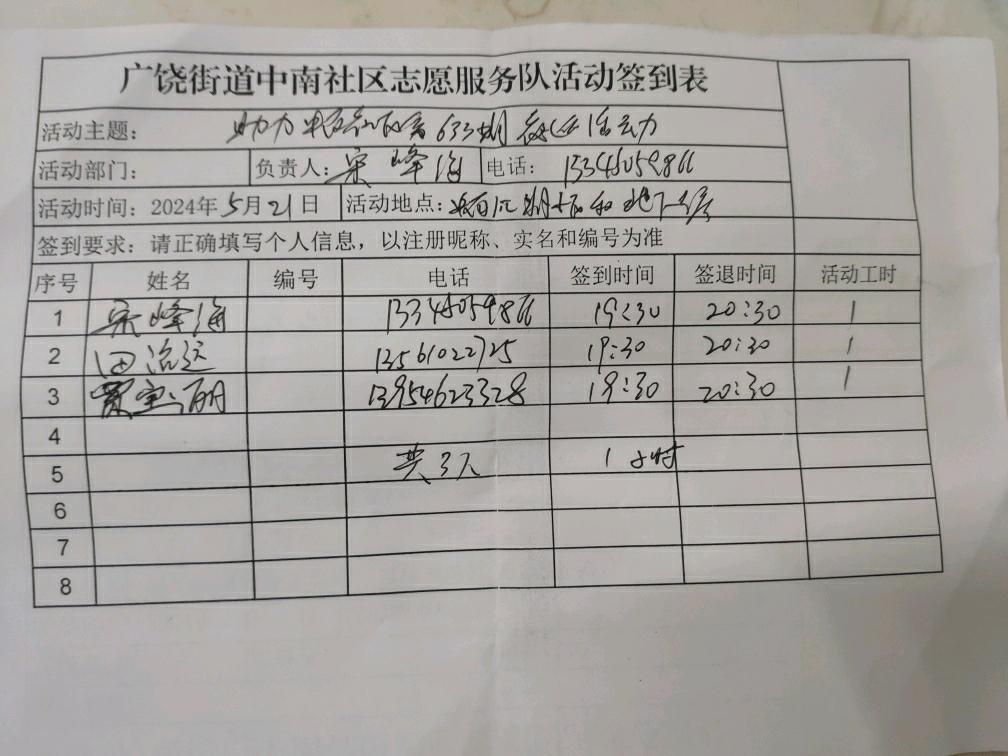 广饶街道中南社区志愿服务队活动签到表
活动主题: 助力 633期 活动
活动部门: 负责人: 宋峰海 电话:
活动时间: 2024年5月21日 活动地点:
签到要求: 请正确填写个人信息，以注册昵称、实名和编号为准
序号 姓名 编号 电话 签到时间 签退时间 活动工时
1 宋峰海 19:30 20:30 1
2 田治远 13561022725 19:30 20:30 1
3 贾宝丽 13954623328 19:30 20:30 1
4
5 共3人 1小时
6
7
8